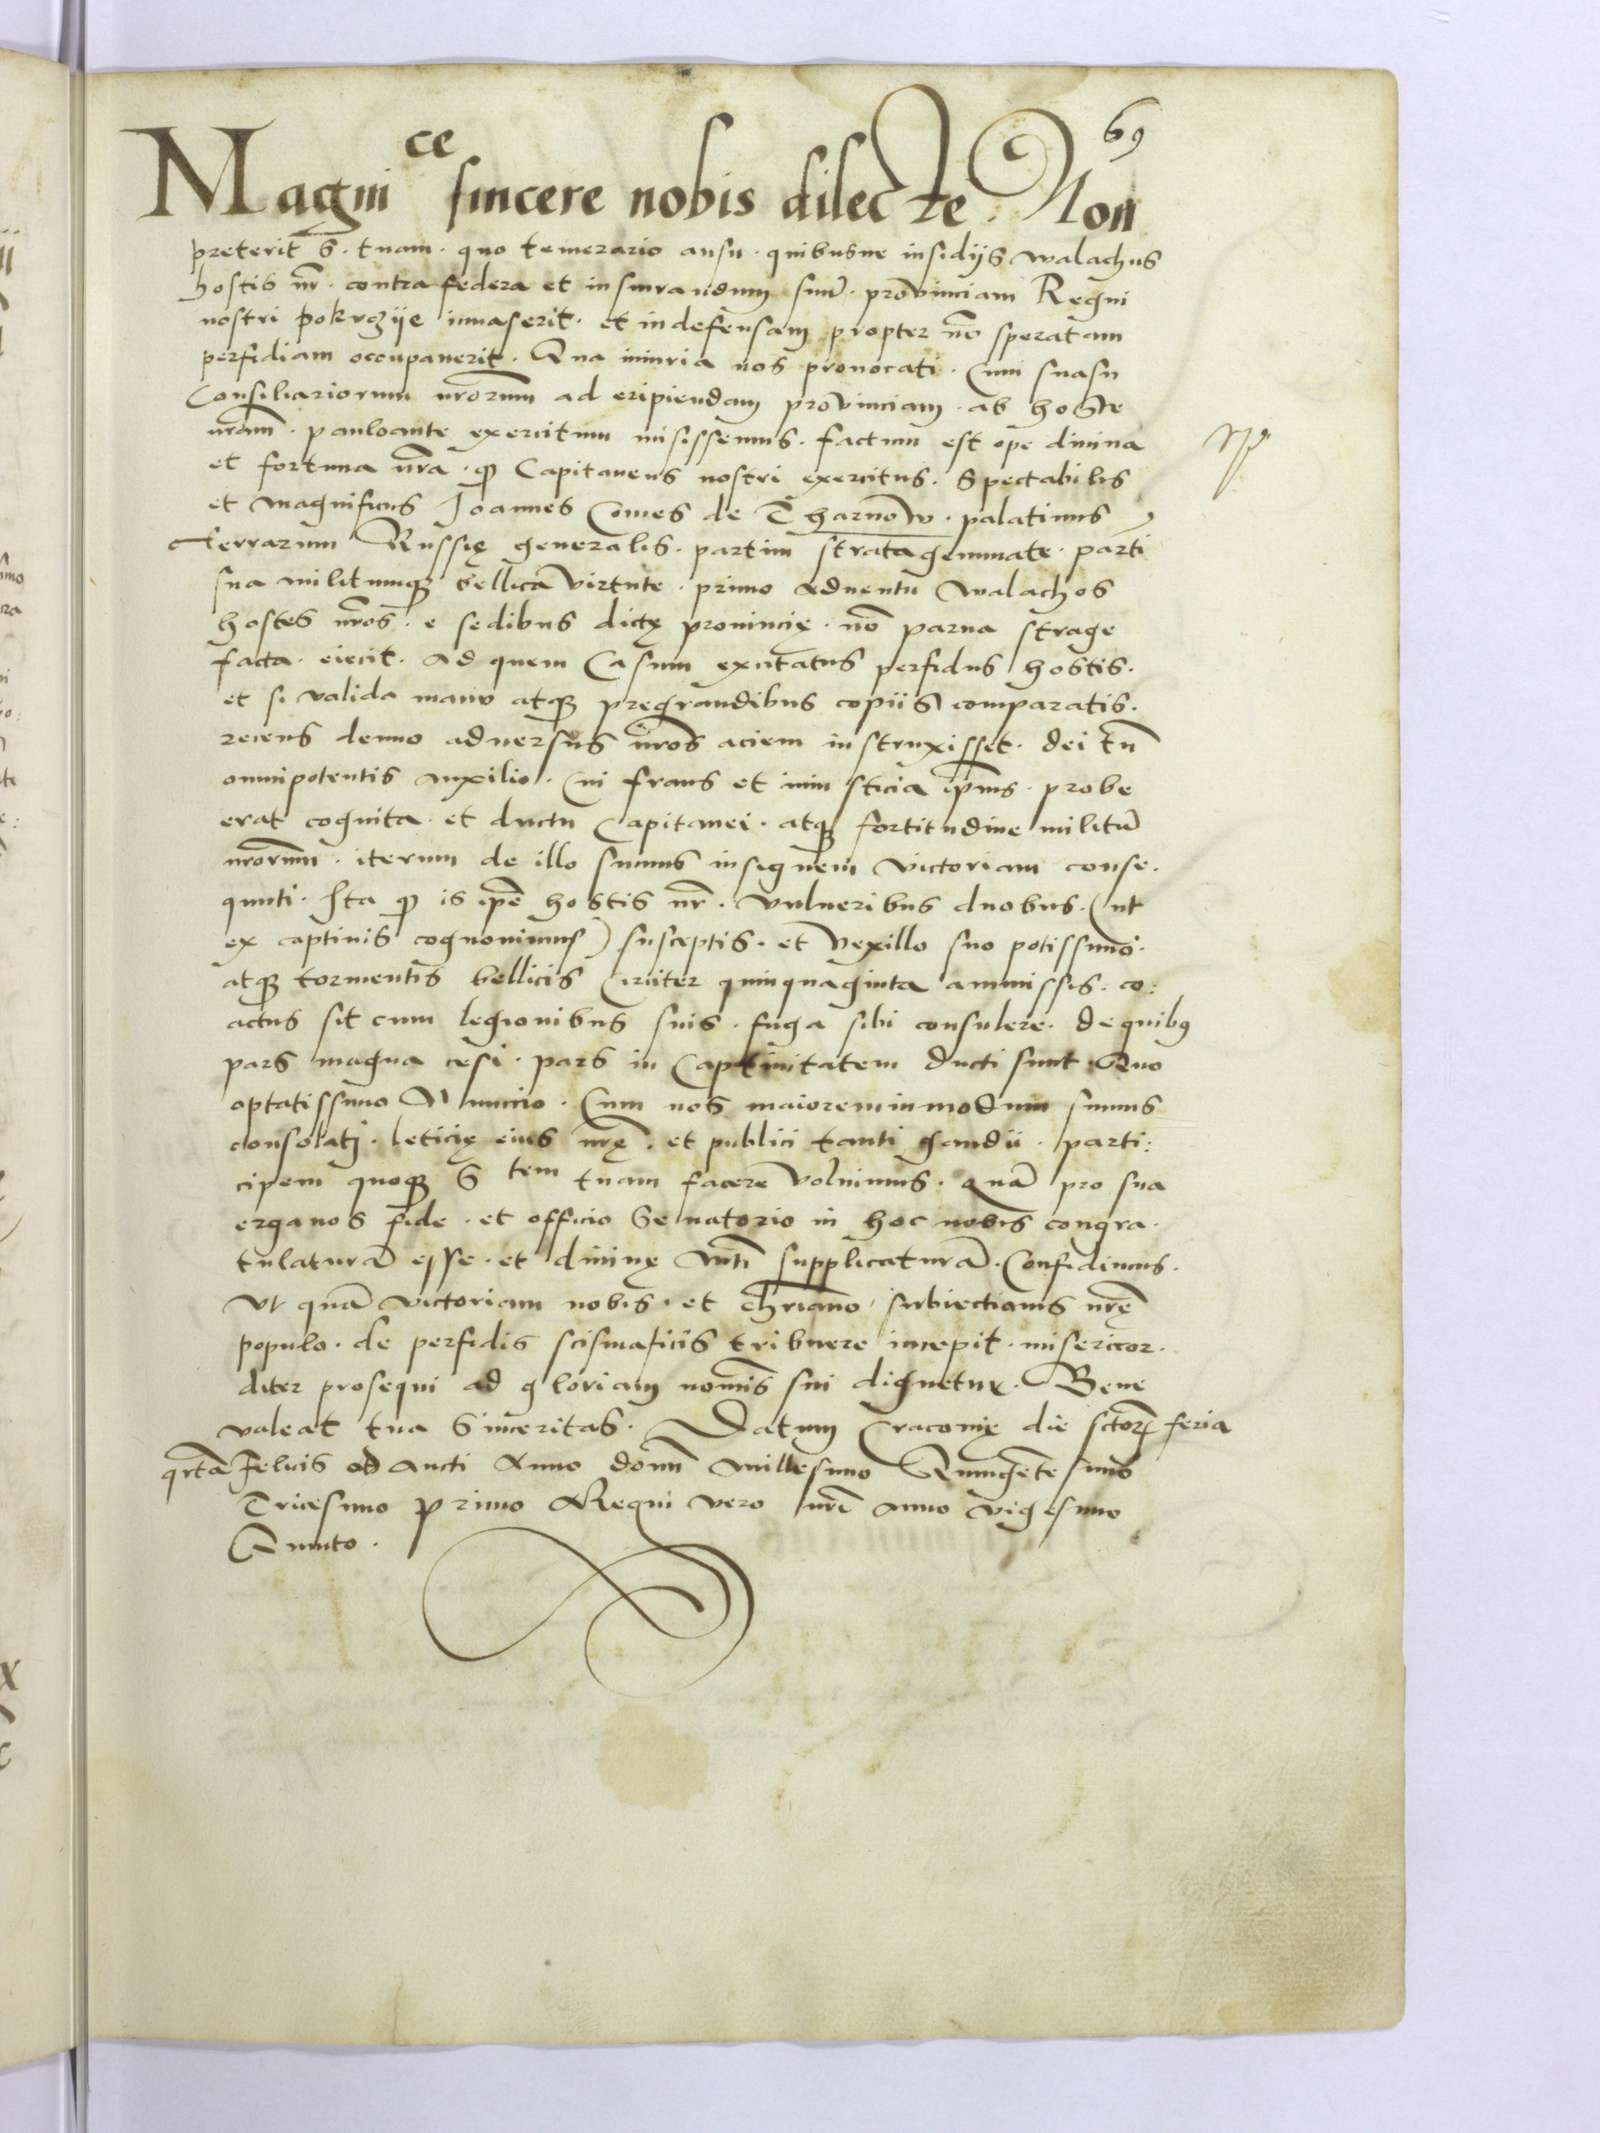 69
Magni ce sincere nobis dilecte. Non
preterit S. tuam. quo temerario ausu. quibusue insidijs walachus
hostis nr̄. contra federa et insiurandum suū. prouinciam Regni
nostri pokrzÿe inuaserit. et indefensam propter nō speratam
perfidiam occupauerit. Qua iniuria nos prouocati. Cum suasu
Consiliariorum nr̄orum ad eripiendam prouinciam. ab hoste
nr̄am. pauloante exercitum misissemus. factum est ope diuina
et fortuna nr̄a. q Capitaneus nostri exercitus. Spectabilis
et magnificus Joannes Comes de Tharnow. palatinus
Terrarum Russię generalis. partim stratagemmate. parti
sua militumq bellica virtute. primo aduentu Walachos
hostes nr̄os. e sedibus dictę prouincię. nō parua strage
facta. eiecit. Ad quem Casum excitatus perfidus hostis.
et si valida manu atq pregrandibus copiis comparatis.
recens denuo aduersus nr̄os aciem instruxisset. dei tn̄
omnipotentis auxilio. Cui fraus et iniusticia ip̄ius. probe
erat cognita. et ductu Capitanei. atq fortitudine militū
nr̄orum. iterum de illo sumus insignem victoriam conse.
quuti. Ita q is ip̄e hostis nr̄. vulneribus duobus. (ut
ex captiuis cognouimus) susceptis. et vexillo suo potissimo.
atq tormentis bellicis Circiter quinquaginta ammissis. co:
actus sit cum legionibus suis. fuga sibi consulere. de quibus
pars magna cesi. pars in Captiuitatem ducti sunt. Quo
optatissimo Nuncio. Cum nos maioreminmodum simus
consolati. leticię eius nr̄ę. et publici tanti gaudii. parti:
cipem quoq S tem tuam facere voluimus. quā pro sua
erganos fide. et officio Senatorio in hoc nobis congra.
tulaturā esse. et diuinę Mti supplicaturā. Confidimus.
Vt quā victoriam nobis. et chriano subiectionis nr̄ę
populo. de perfidis scismaticis tribuere incepit. misericor.
diter prosequi ad gloriam nominis sui dignetur. Bene
valeat tua Sinceritas. Datum Cracouię die sctorꝝ feria
qrta Felicis et Aucti Anno domini Millesimo Quingentesimo
Tricesimo primo Regni vero nr̄i anno vigesimo
Quinto.